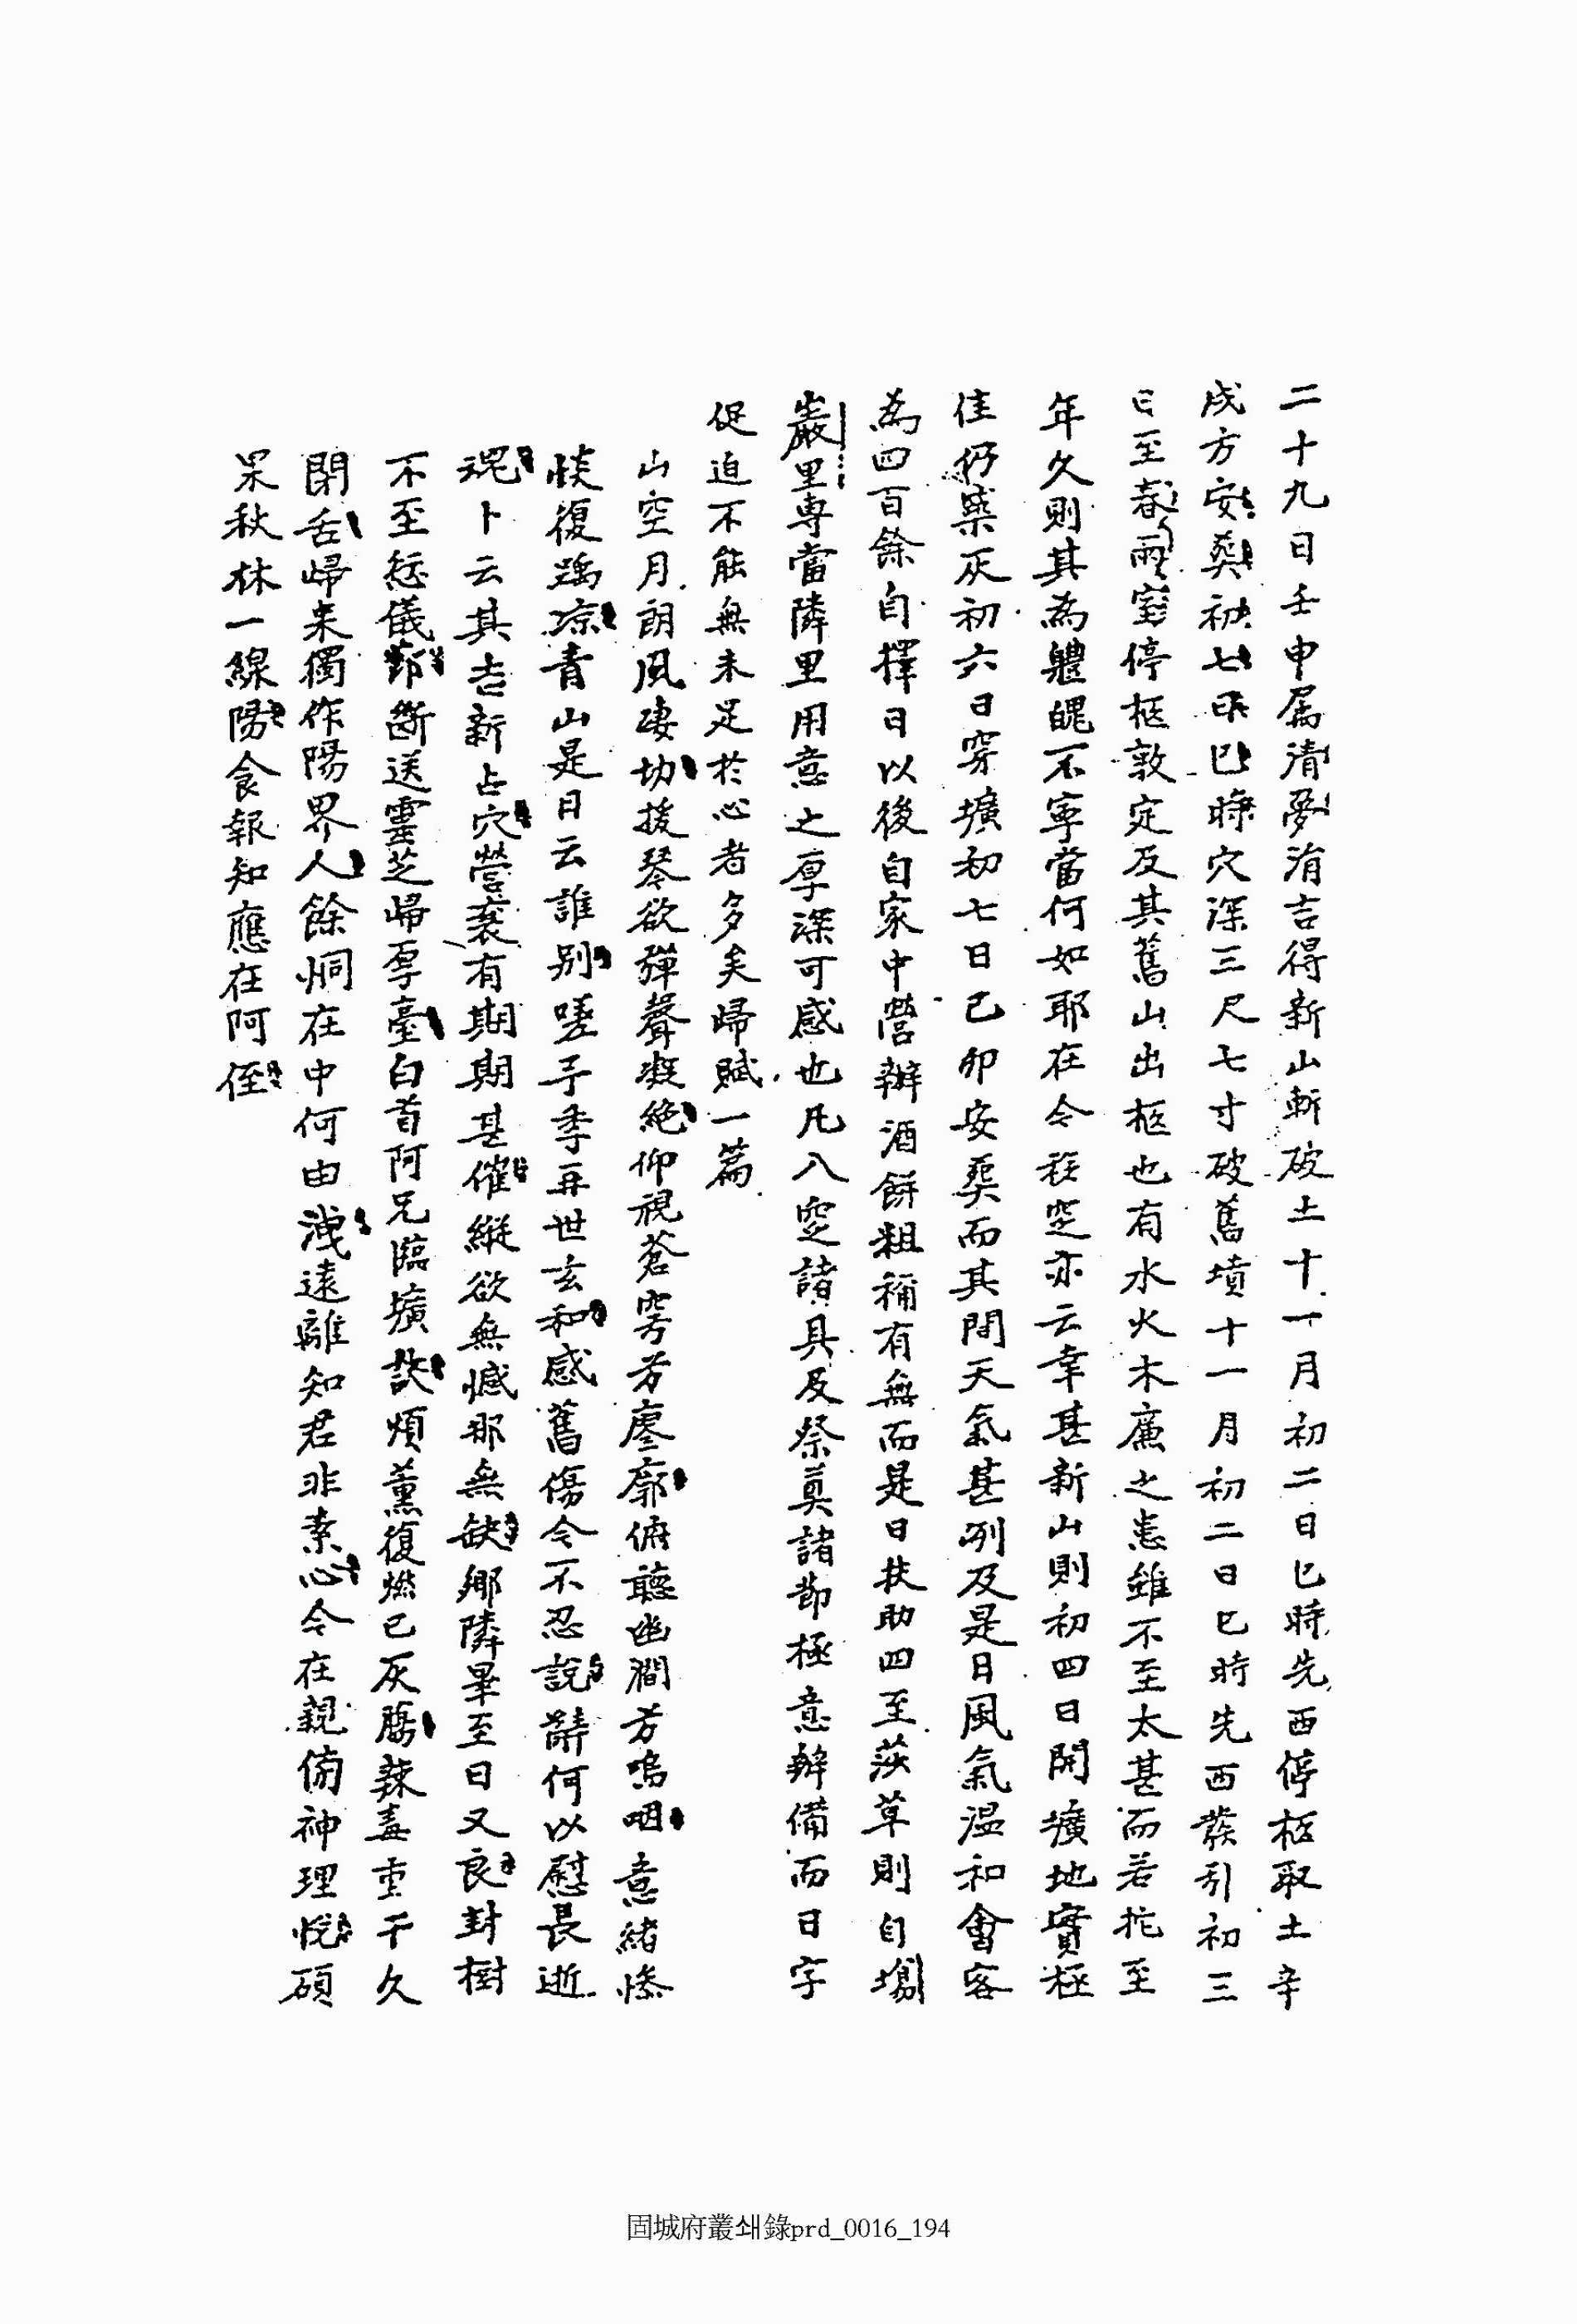 二十九日壬申属清夢洧吉得新山斬破土十一月初二日巳時先西停柩取土辛
戌方安葬初七日巳時穴深三尺七寸破舊墳十一月初二日巳時先西發引初三
日至春雨室停柩敦定及其舊山出柩也有水火木廉之恙雖不至太甚而若拕至
年久則其為軆魄不寧當何如耶在今移窆亦云幸甚新山則初四日開壙地實極
佳仍築灰初六日穿壙初七日己卯安葬而其間天氣甚冽及是日風氣溫和會客
為四百餘自擇日以後自家中營辦酒餅粗補有無而是日扶助四至莎草則自場
巖里専當隣里用意之厚深可感也凡入窆諸具及祭奠諸節極意辦備而日字
促迫不能無未足於心者多矣歸賦一篇
山空月朗風凄切援琴欲彈聲凝絶仰視蒼穹兮廖廓俯聽幽澗兮嗚咽意緒慘
惔復踽凉青山是日云誰別嗟予季再世玄和感舊傷今不忍說辭何以慰長逝
魂卜云其吉新占穴營衰有期期甚催縱欲無憾那無缺鄉隣畢至日又良封樹
不至愆儀節斷送靈芝歸厚臺白首阿兄臨壙訣煩薰復燃已灰膓辣毒重干久
閉舌歸来獨作陽界人餘恫在中何由洩遠離知君非素心今在親傍神理悅碩
果秋林一線陽食報知應在阿侄
固城府叢쇄錄prd_0016_194